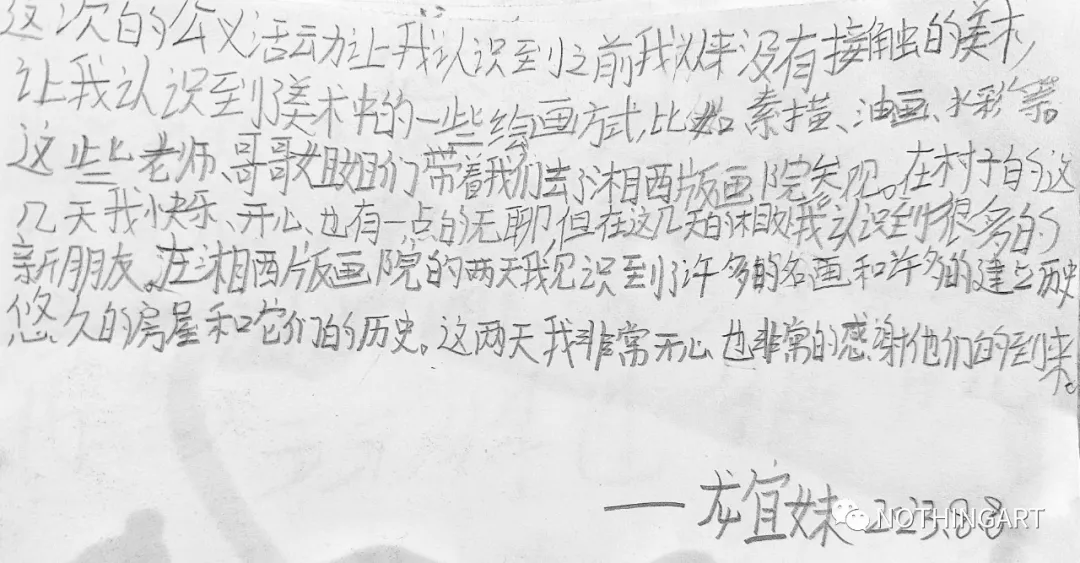 这次的公义活动让我认识到之前我从来没有接触的美术,
让我认识到了美术史的一些绘画方式,比如素描、油画、水彩等。
这些老师、哥哥姐姐们带着我们去了湘西版画院参观。在村子的这
几天我快乐、开心、也有一点的无聊,但在这几天的相处我认识到很多的
新朋友。在湘西版画院的两天我见识到了许多的名画和许多的建立历史
悠久的房屋和它们的历史。这两天我非常开心也非常的感谢他们的到来。
——龙宜妹 2023.08.8
NOTHINGART